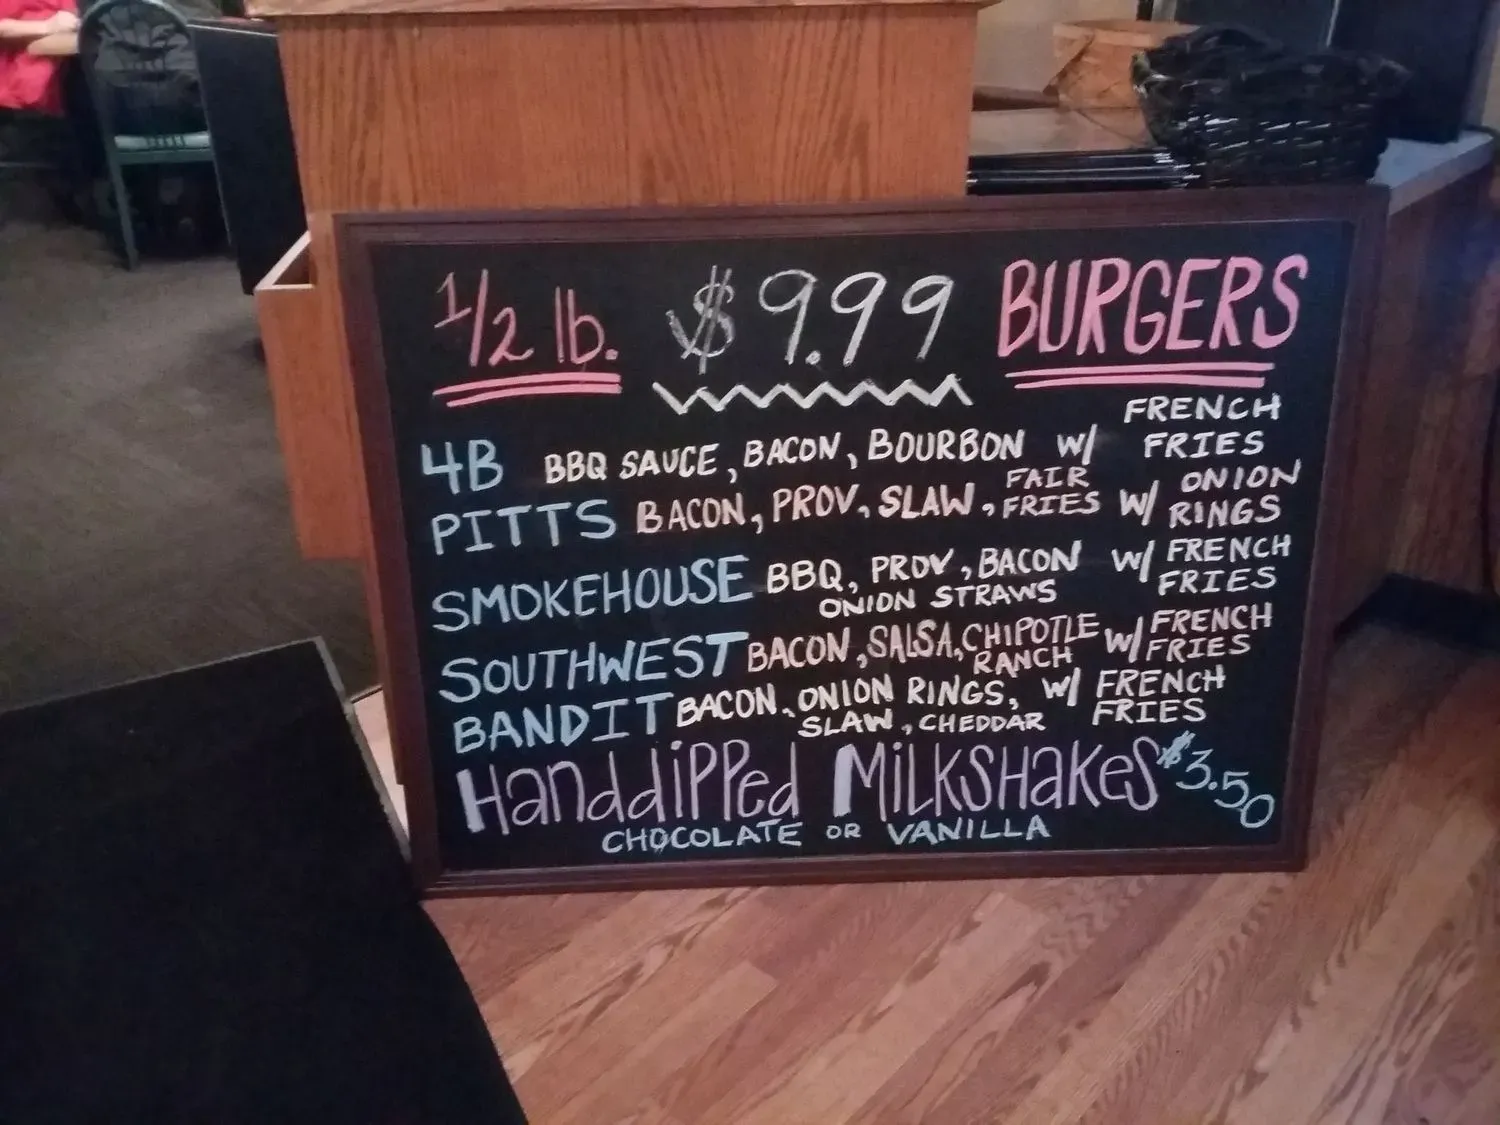 1/2 lb. $9.99 BURGERS
4B BBQ SAUCE, BACON, BOURBON W/ FRENCH FRIES
PITTS BACON, PROV, SLAW, FAIR FRIES W/ ONION RINGS
SMOKEHOUSE BBQ, PROV, BACON ONION STRAWS W/ FRENCH FRIES
SOUTHWEST BACON, SALSA, CHIPOTLE RANCH W/ FRENCH FRIES
BANDIT BACON, ONION RINGS, SLAW, CHEDDAR W/ FRENCH FRIES
HanddiPPed MiLKSHaKeS $3.50
CHOCOLATE OR VANILLA